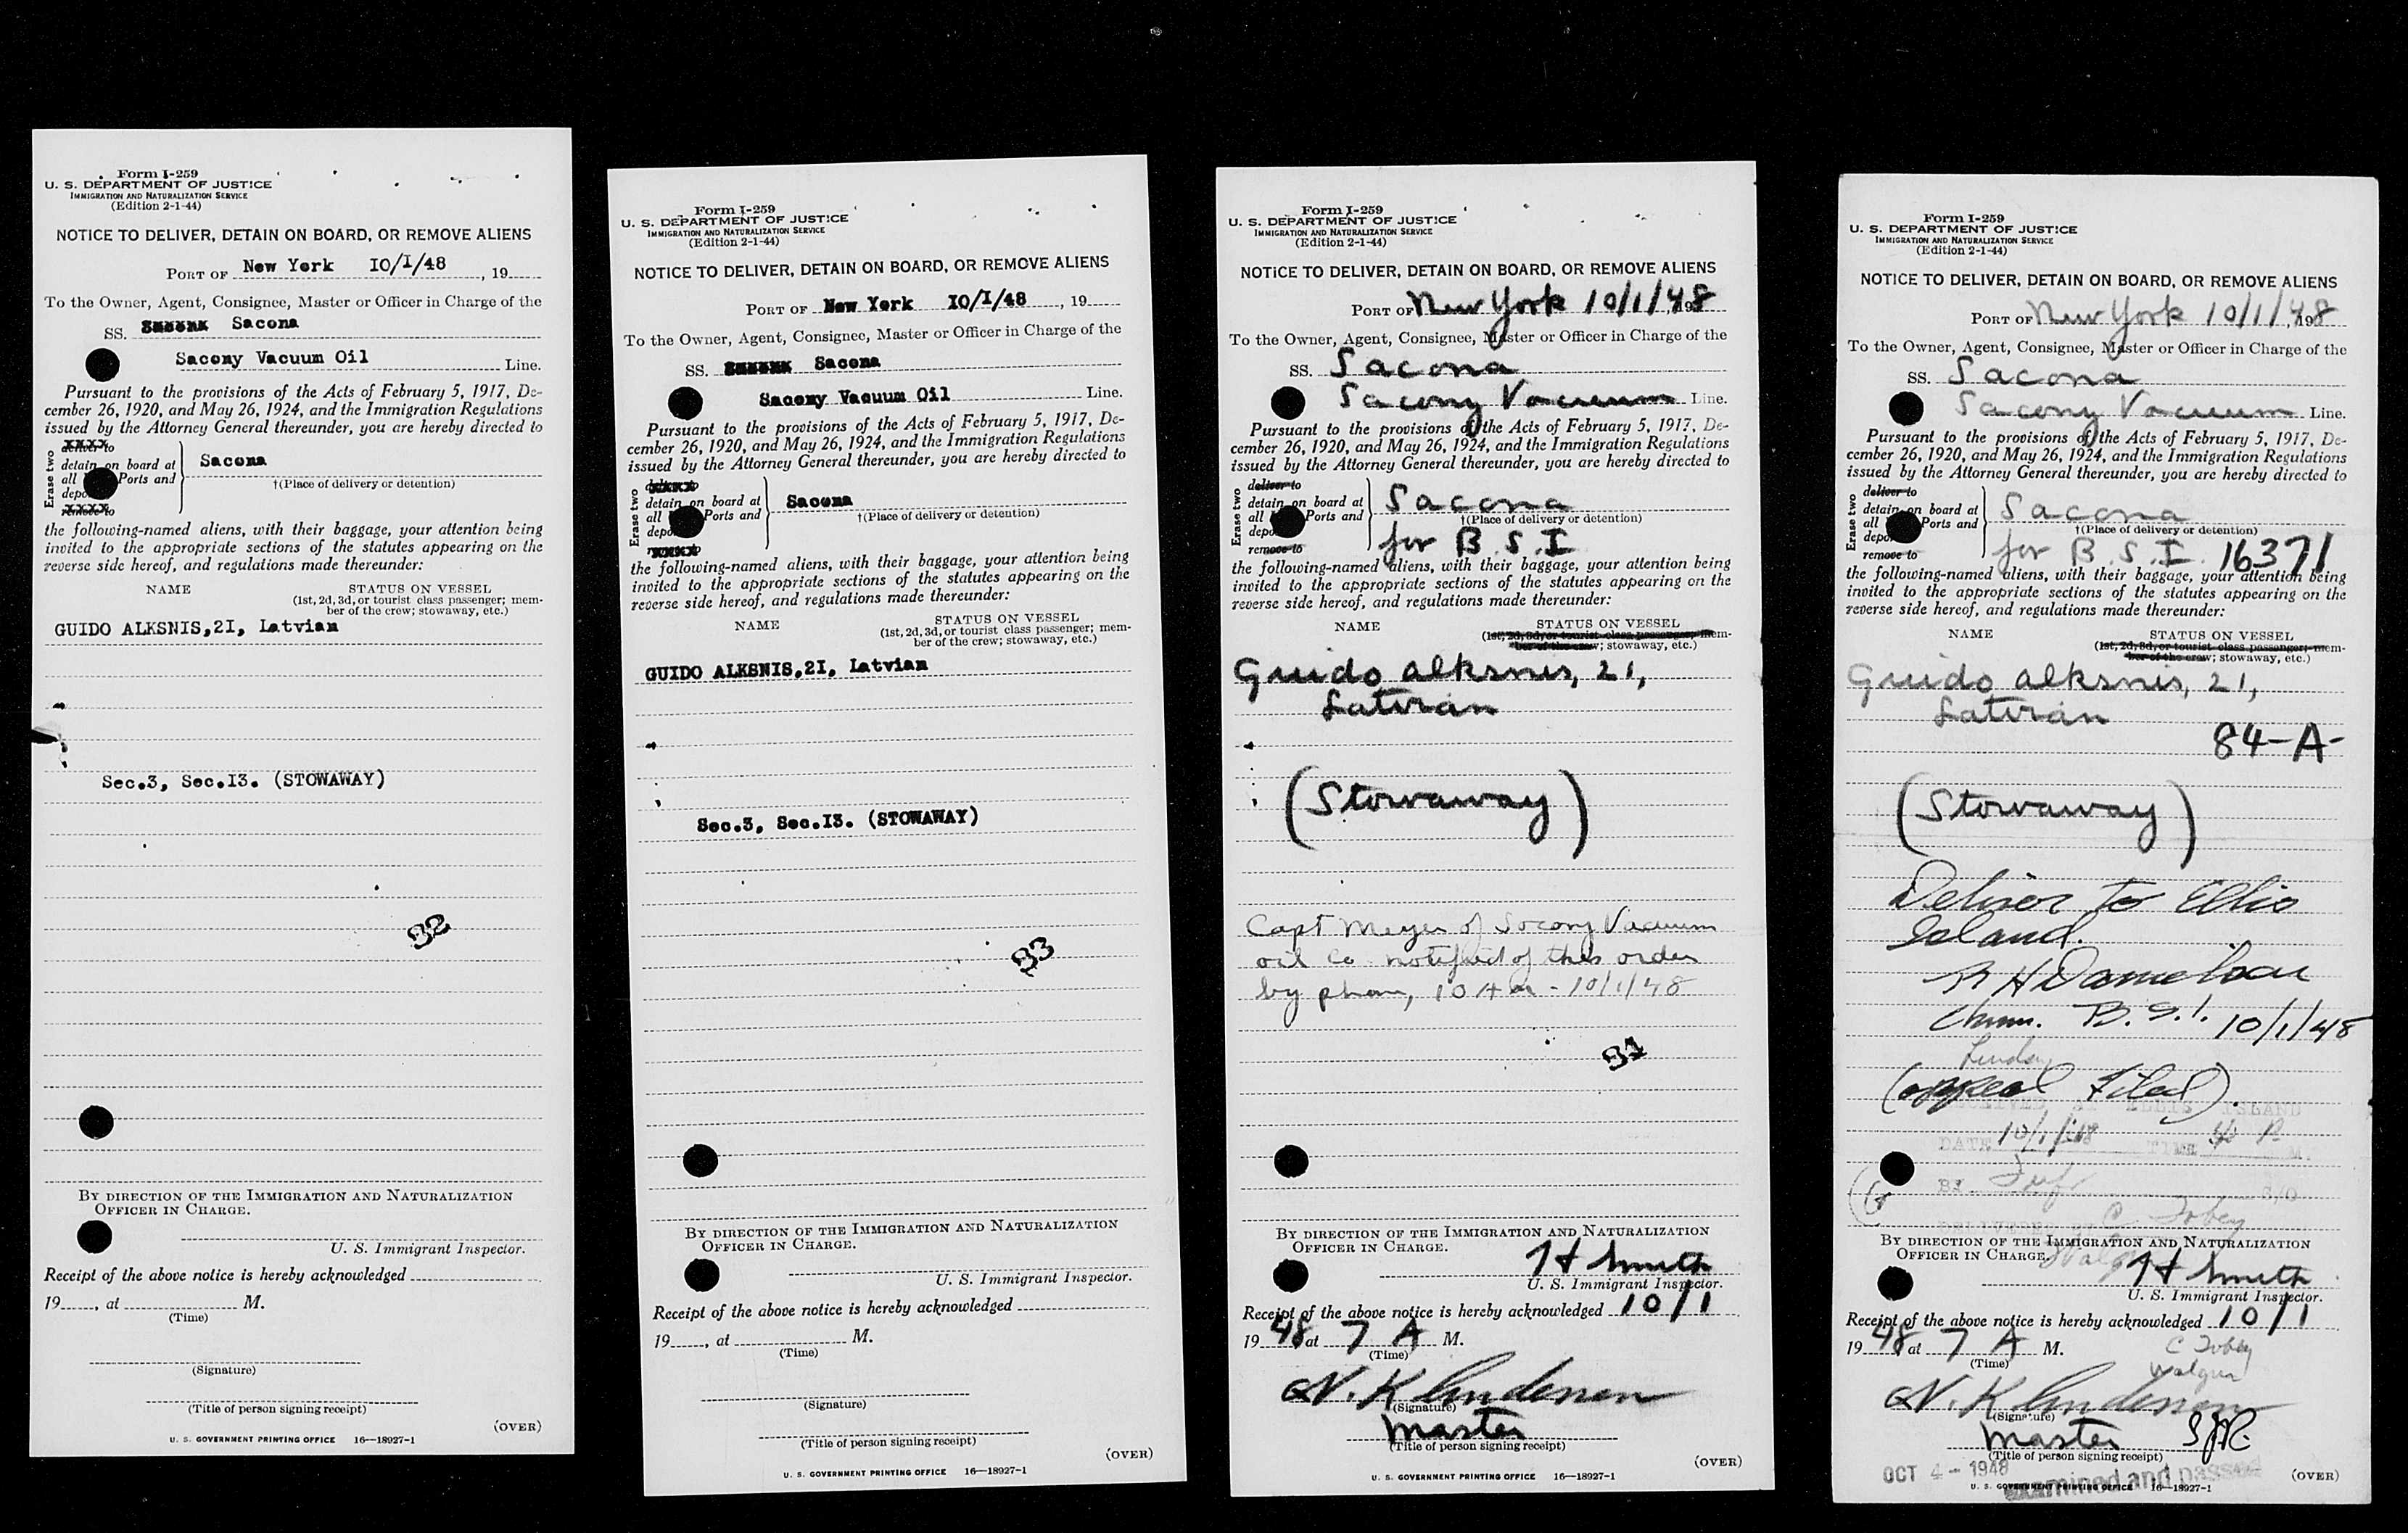 Form I-259
U. S. DEPARTMENT OF JUSTICE
IMMIGRATION AND NATURALIZATION SERVICE
(Edition 2-1-44)
NOTICE TO DELIVER, DETAIN ON BOARD, OR REMOVE ALIENS
PORT OF New York 10/1/48, 19
To the Owner, Agent, Consignee, Master or Officer in Charge of the
SS. Sacona
Sacony Vacuum Oil Line.
Pursuant to the provisions of the Acts of February 5, 1917, De-
cember 26, 1920, and May 26, 1924, and the Immigration Regulations
issued by the Attorney General thereunder, you are hereby directed to
Erase two
deliver to
detain on board at
all Ports and
depo
remove to
Sacona
†(Place of delivery or detention)
the following-named aliens, with their baggage, your attention being
invited to the appropriate sections of the statutes appearing on the
reverse side hereof, and regulations made thereunder:
NAME STATUS ON VESSEL
(1st, 2d, 3d, or tourist class passenger; mem-
ber of the crew; stowaway, etc.)
GUIDO ALKSNIS,2I, Latvian
Sec.3, Sec.I3. (STOWAWAY)
92
BY DIRECTION OF THE IMMIGRATION AND NATURALIZATION
OFFICER IN CHARGE.
U. S. Immigrant Inspector.
Receipt of the above notice is hereby acknowledged
19, at M.
(Time)
(Signature)
(Title of person signing receipt)
(OVER)
U. S. GOVERNMENT PRINTING OFFICE 16—18927-1
Form I-259
U. S. DEPARTMENT OF JUSTICE
IMMIGRATION AND NATURALIZATION SERVICE
(Edition 2-1-44)
NOTICE TO DELIVER, DETAIN ON BOARD, OR REMOVE ALIENS
PORT OF New York 10/1/48, 19
To the Owner, Agent, Consignee, Master or Officer in Charge of the
SS. Sacona
Sacony Vacuum Oil Line.
Pursuant to the provisions of the Acts of February 5, 1917, De-
cember 26, 1920, and May 26, 1924, and the Immigration Regulations
issued by the Attorney General thereunder, you are hereby directed to
Erase two
detain on board at
all Ports and
depo
Sacona
†(Place of delivery or detention)
the following-named aliens, with their baggage, your attention being
invited to the appropriate sections of the statutes appearing on the
reverse side hereof, and regulations made thereunder:
NAME STATUS ON VESSEL
(1st, 2d, 3d, or tourist class passenger; mem-
ber of the crew; stowaway, etc.)
GUIDO ALKSNIS,2I, Latvian
Sec.3, Sec.I3. (STOWAWAY)
93
BY DIRECTION OF THE IMMIGRATION AND NATURALIZATION
OFFICER IN CHARGE.
U. S. Immigrant Inspector.
Receipt of the above notice is hereby acknowledged
19, at M.
(Time)
(Signature)
(Title of person signing receipt)
(OVER)
U. S. GOVERNMENT PRINTING OFFICE 16—18927-1
Form I-259
U. S. DEPARTMENT OF JUSTICE
IMMIGRATION AND NATURALIZATION SERVICE
(Edition 2-1-44)
NOTICE TO DELIVER, DETAIN ON BOARD, OR REMOVE ALIENS
PORT OF New York 10/1/48
To the Owner, Agent, Consignee, Master or Officer in Charge of the
SS. Sacona
Sacony Vacuum Line.
Pursuant to the provisions of the Acts of February 5, 1917, De-
cember 26, 1920, and May 26, 1924, and the Immigration Regulations
issued by the Attorney General thereunder, you are hereby directed to
Erase two
deliver to
detain on board at
all Ports and
depo
remove to
Sacona
†(Place of delivery or detention)
for B.S.I.
the following-named aliens, with their baggage, your attention being
invited to the appropriate sections of the statutes appearing on the
reverse side hereof, and regulations made thereunder:
NAME STATUS ON VESSEL
(1st, 2d, 3d, or tourist class passenger; mem-
ber of the crew; stowaway, etc.)
Guido Alksnis, 21,
Latvian
(Stowaway)
Capt Meyer of Socony Vacuum
oil Co notified of this order
by phone, 10 AM - 10/1/48
BY DIRECTION OF THE IMMIGRATION AND NATURALIZATION
OFFICER IN CHARGE.
Smith
U. S. Immigrant Inspector.
Receipt of the above notice is hereby acknowledged 10/1
1948 at 7 A M.
(Time)
(Signature)
Master
(Title of person signing receipt)
(OVER)
U. S. GOVERNMENT PRINTING OFFICE 16—18927-1
Form I-259
U. S. DEPARTMENT OF JUSTICE
IMMIGRATION AND NATURALIZATION SERVICE
(Edition 2-1-44)
NOTICE TO DELIVER, DETAIN ON BOARD, OR REMOVE ALIENS
PORT OF New York 10/1/48
To the Owner, Agent, Consignee, Master or Officer in Charge of the
SS. Sacona
Sacony Vacuum Line.
Pursuant to the provisions of the Acts of February 5, 1917, De-
cember 26, 1920, and May 26, 1924, and the Immigration Regulations
issued by the Attorney General thereunder, you are hereby directed to
Erase two
deliver to
detain on board at
all Ports and
depo
remove to
Sacona
†(Place of delivery or detention)
for B.S.I. 16371
the following-named aliens, with their baggage, your attention being
invited to the appropriate sections of the statutes appearing on the
reverse side hereof, and regulations made thereunder:
NAME STATUS ON VESSEL
(1st, 2d, 3d, or tourist class passenger; mem-
ber of the crew; stowaway, etc.)
Guido Alksnis, 21,
Latvian
84-A-
(Stowaway)
Deliver to Ellis
Island.
Chmn. B.S.I. 10/1/48
(appeal Filed).
RECEIVED AT ELLIS ISLAND
DATE 10/1/48 TIME P. M.
BY S/O
C Tobey
BY DIRECTION OF THE IMMIGRATION AND NATURALIZATION
OFFICER IN CHARGE.
Smith
U. S. Immigrant Inspector.
Receipt of the above notice is hereby acknowledged 10/1
1948 at 7 A M.
(Time)
C Tobey
(Signature)
Master
(Title of person signing receipt)
OCT 4 - 1948
examined and passed
(OVER)
U. S. GOVERNMENT PRINTING OFFICE 16—18927-1